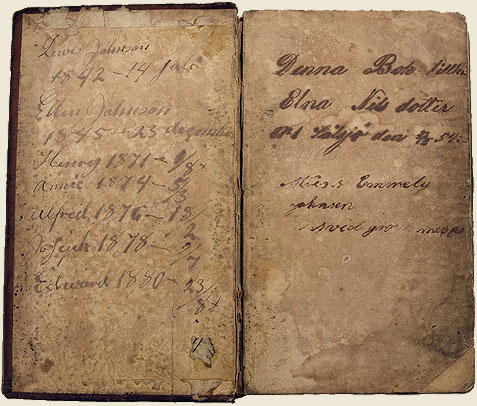 Lewis Johnson
1842 – 14 juli
Ellen Johnson
1845 – 23 december
Henry 1871 – 9/8 +
Annie 1874 – 5/3
Alfred 1876 – 18/2
Joseph 1878 – 2/7
Edward 1880 – 23/8 +
Denna Bok tillhör
Elna Nils dotter
den 54
Emmely
Johnson